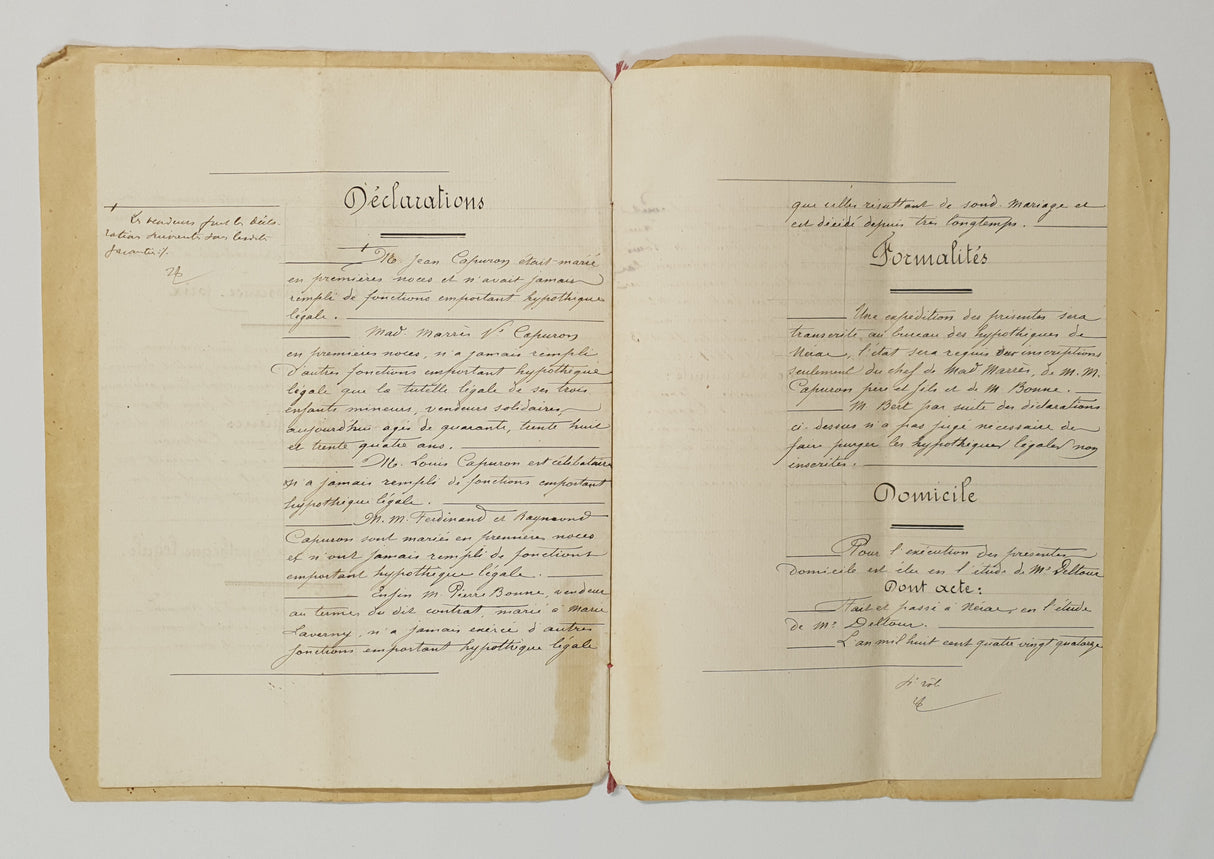 Déclarations
Les vendeurs font les décla-
rations suivantes sous lesdites
garanties ./.
M. Jean Capuron était marié
en premières noces et n'avait jamais
rempli de fonctions emportant hypothèque
légale.
Mad. Marrès Vve Capuron
en premières noces, n'a jamais rempli
d'autres fonctions emportant hypothèque
légale que la tutelle légale de ses trois
enfants mineurs, vendeurs solidaires,
aujourd'hui agés de quarante, trente huit
et trente quatre ans.
M. Louis Capuron est célibataire
n'a jamais rempli de fonctions emportant
hypothèque légale.
M. M. Ferdinand et Raymond
Capuron sont mariés en premières noces
et n'ont jamais rempli de fonctions
emportant hypothèque légale.
Enfin M. Pierre Bonne, vendeur
au termes du dit contrat, marié à Marie
Laverny, n'a jamais exercé d'autres
fonctions emportant hypothèque légale
que celles résultant de sond. mariage et
est décédé depuis très longtemps.
Formalités
Une expédition des présentes sera
transcrite au bureau des hypothèques de
Nérac, l'état sera requis des inscriptions
seulement du chef de Mad Marrès, de M. M.
Capuron père et fils et de M. Bonne.
M. Bert par suite des déclarations
ci-dessus n'a pas jugé nécessaire de
faire purger les hypothèques légales non
inscrites.
Domicile
Pour l'exécution des présentes
domicile est élu en l'étude de Me Deltour
Dont acte:
Fait et passé à Nérac, en l'étude
de Me Deltour.
L'an mil huit cent quatre vingt quatorze